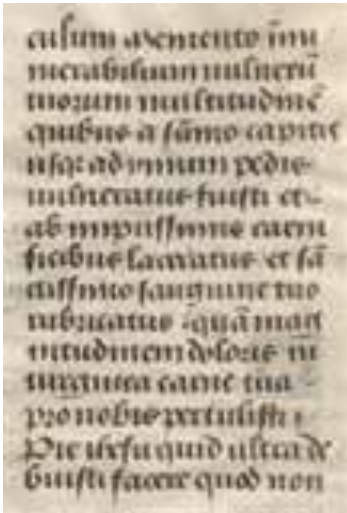 culum memento īnu
merabilium vulnerū
tuorum multitudinē
quibus a sūmo capitis
usq; ad ymum pedis
vulneratus fuisti et
ab impiissimis carni
ficibus laceratus et sā
ctissimo sanguine tuo
rubricatus quā mag
nitudinem doloris in
virginea carne tua
pro nobis pertulisti
Pie ihesu quid ultra de
buisti facere quod non